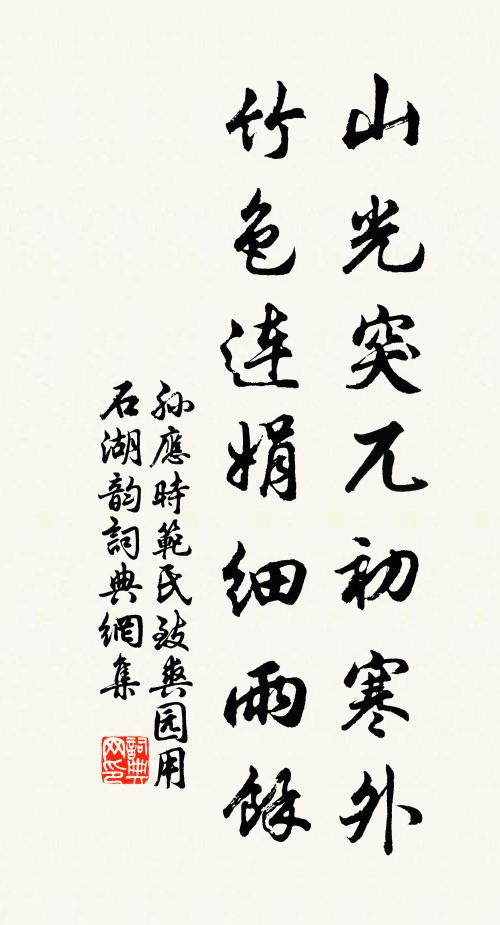 山光突兀初寒外
竹色連娟細雨餘
孫應時範氏致爽园用
石湖韵詞典網集
詞典網印